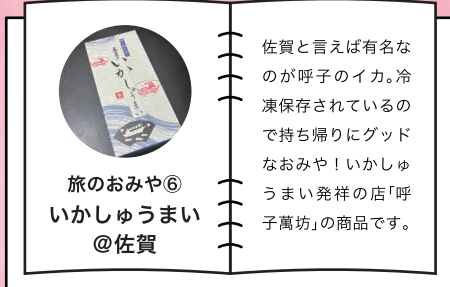 いかしゅうまい
旅のおみや⑥
いかしゅうまい
＠佐賀
佐賀と言えば有名な
のが呼子のイカ。冷
凍保存されているの
で持ち帰りにグッド
なおみや！いかしゅ
うまい発祥の店「呼
子萬坊」の商品です。